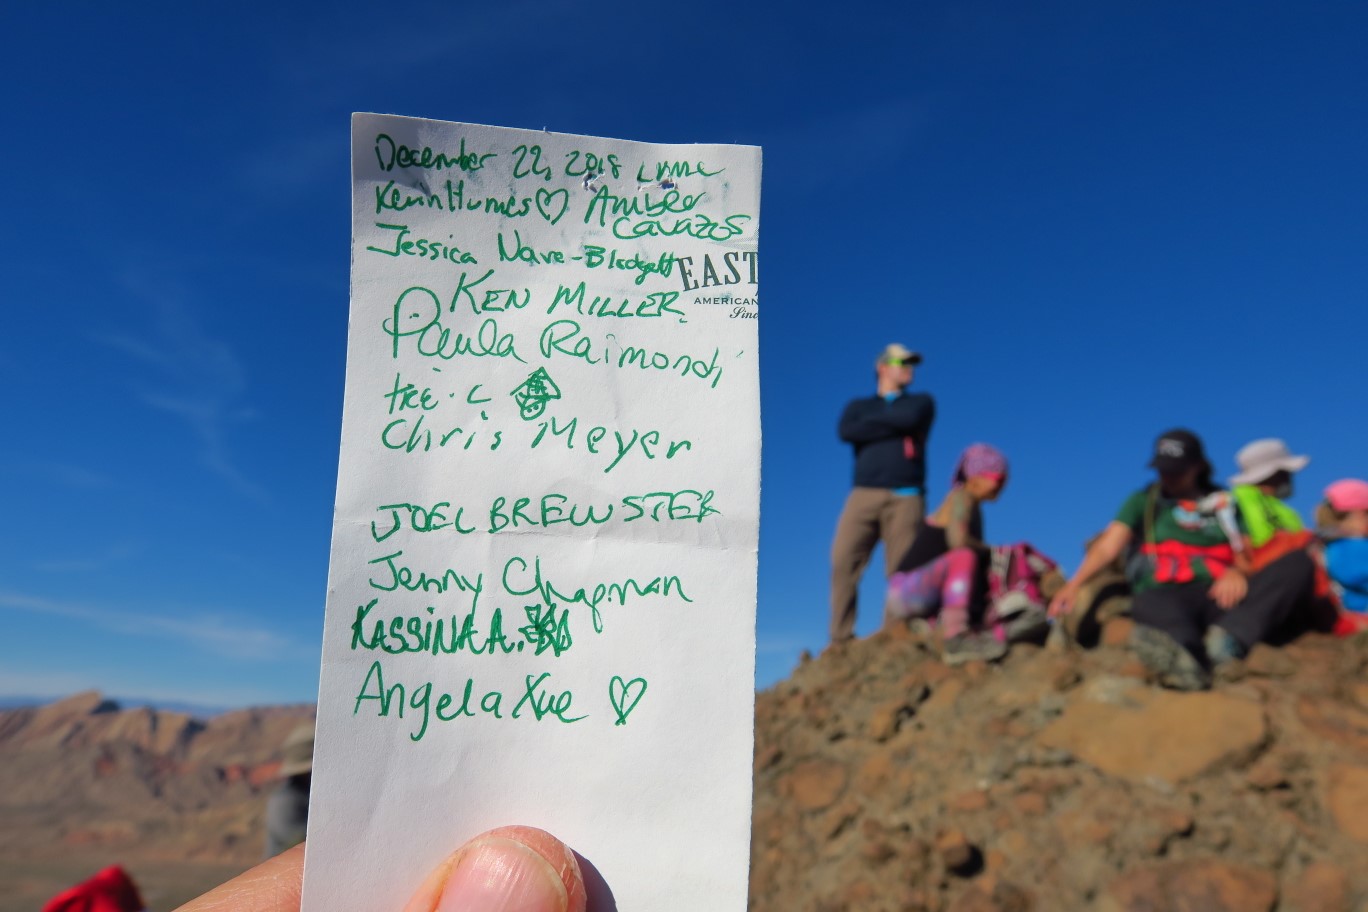 December 22, 2018
Kevin Humes♡ Amber
Cavazos
Jessica Nave-Blodgett
EAST
AMERICAN
Sinc
KEN MILLER
Paula Raimondi
tree·c
Chris Meyer
JOEL BREWSTER
Jenny Chapman
KASSINA A.
Angela Xue ♡